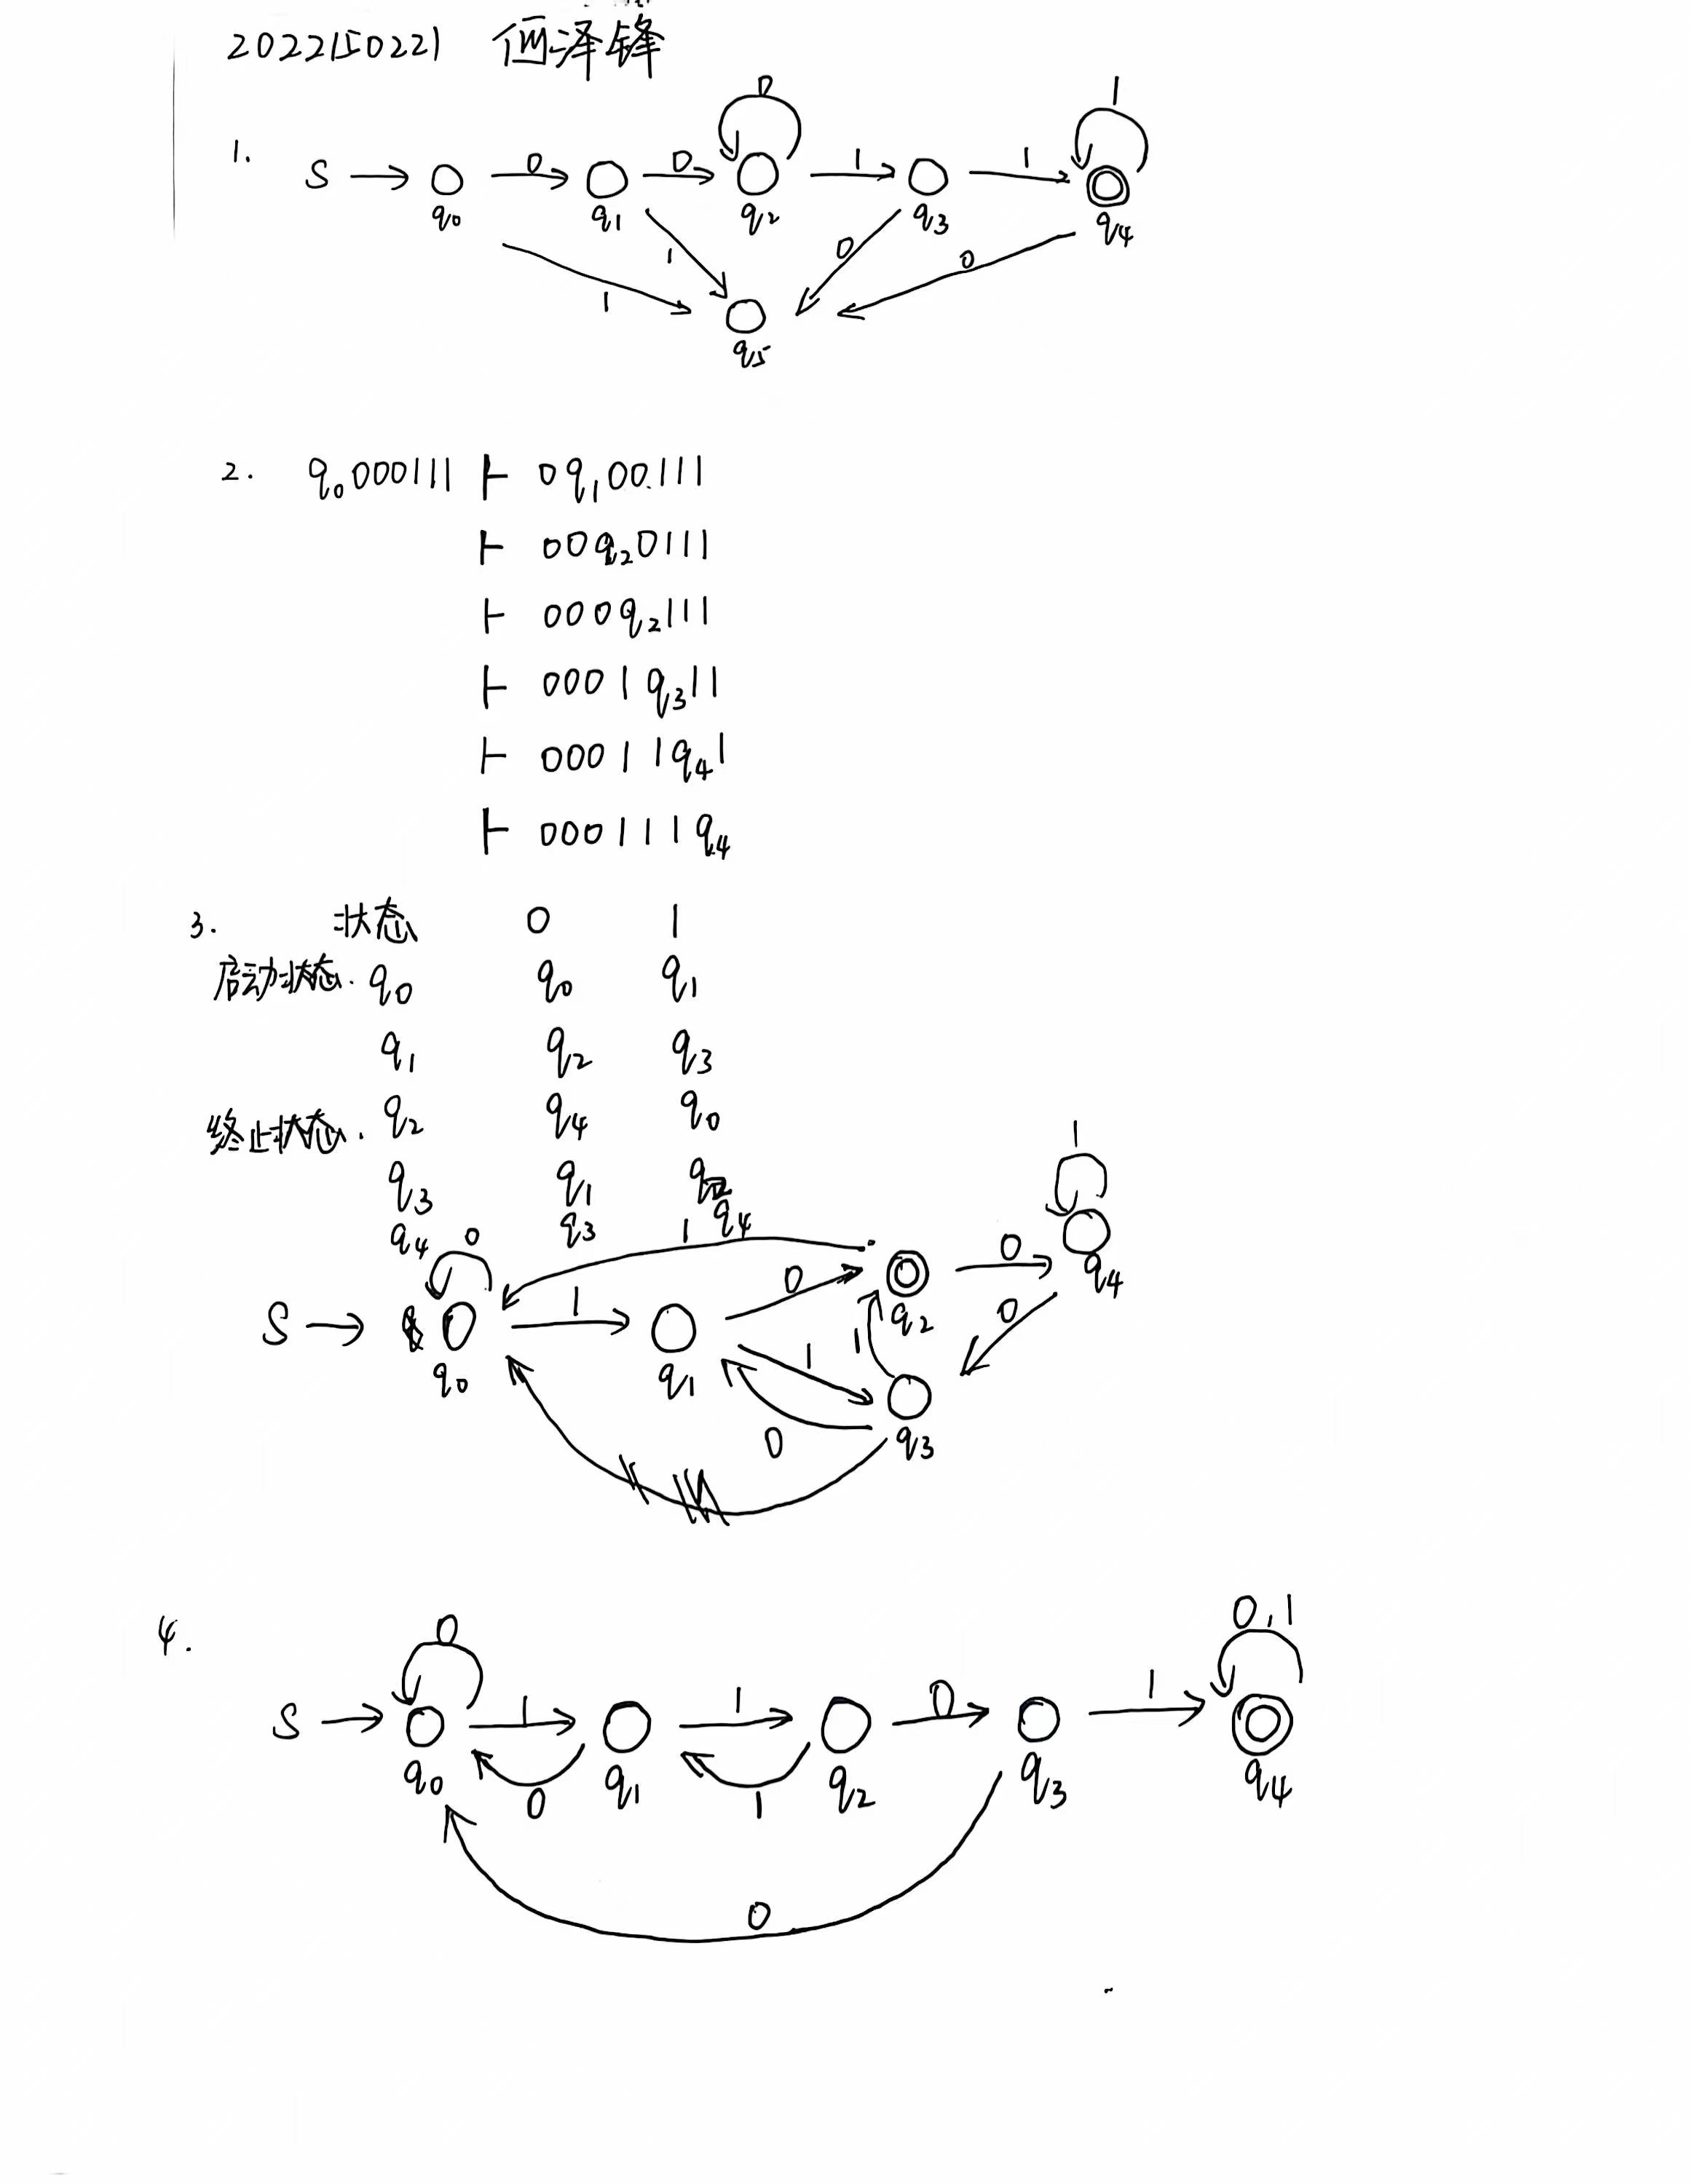 2022150221 俩泽锋
1. S → q0 0 q1 0 q2 0 1 q3 1 q4 1
1 1 0 0
q5
2. q0000111 ⊢ 0q100111
⊢ 00q20111
⊢ 000q2111
⊢ 0001q311
⊢ 00011q41
⊢ 000111q4
3. 状态 0 1
启动状态. q0 q0 q1
q1 q2 q3
终止状态. q2 q4 q0
q3 q1 q2
q4 q3 q4
S → q0 0 1 q1 0 1 q2 1 0 q4 1
0 1 q3 0
4. S → q0 0 1 q1 1 q2 0 q3 1 q4 0,1
0 1
0